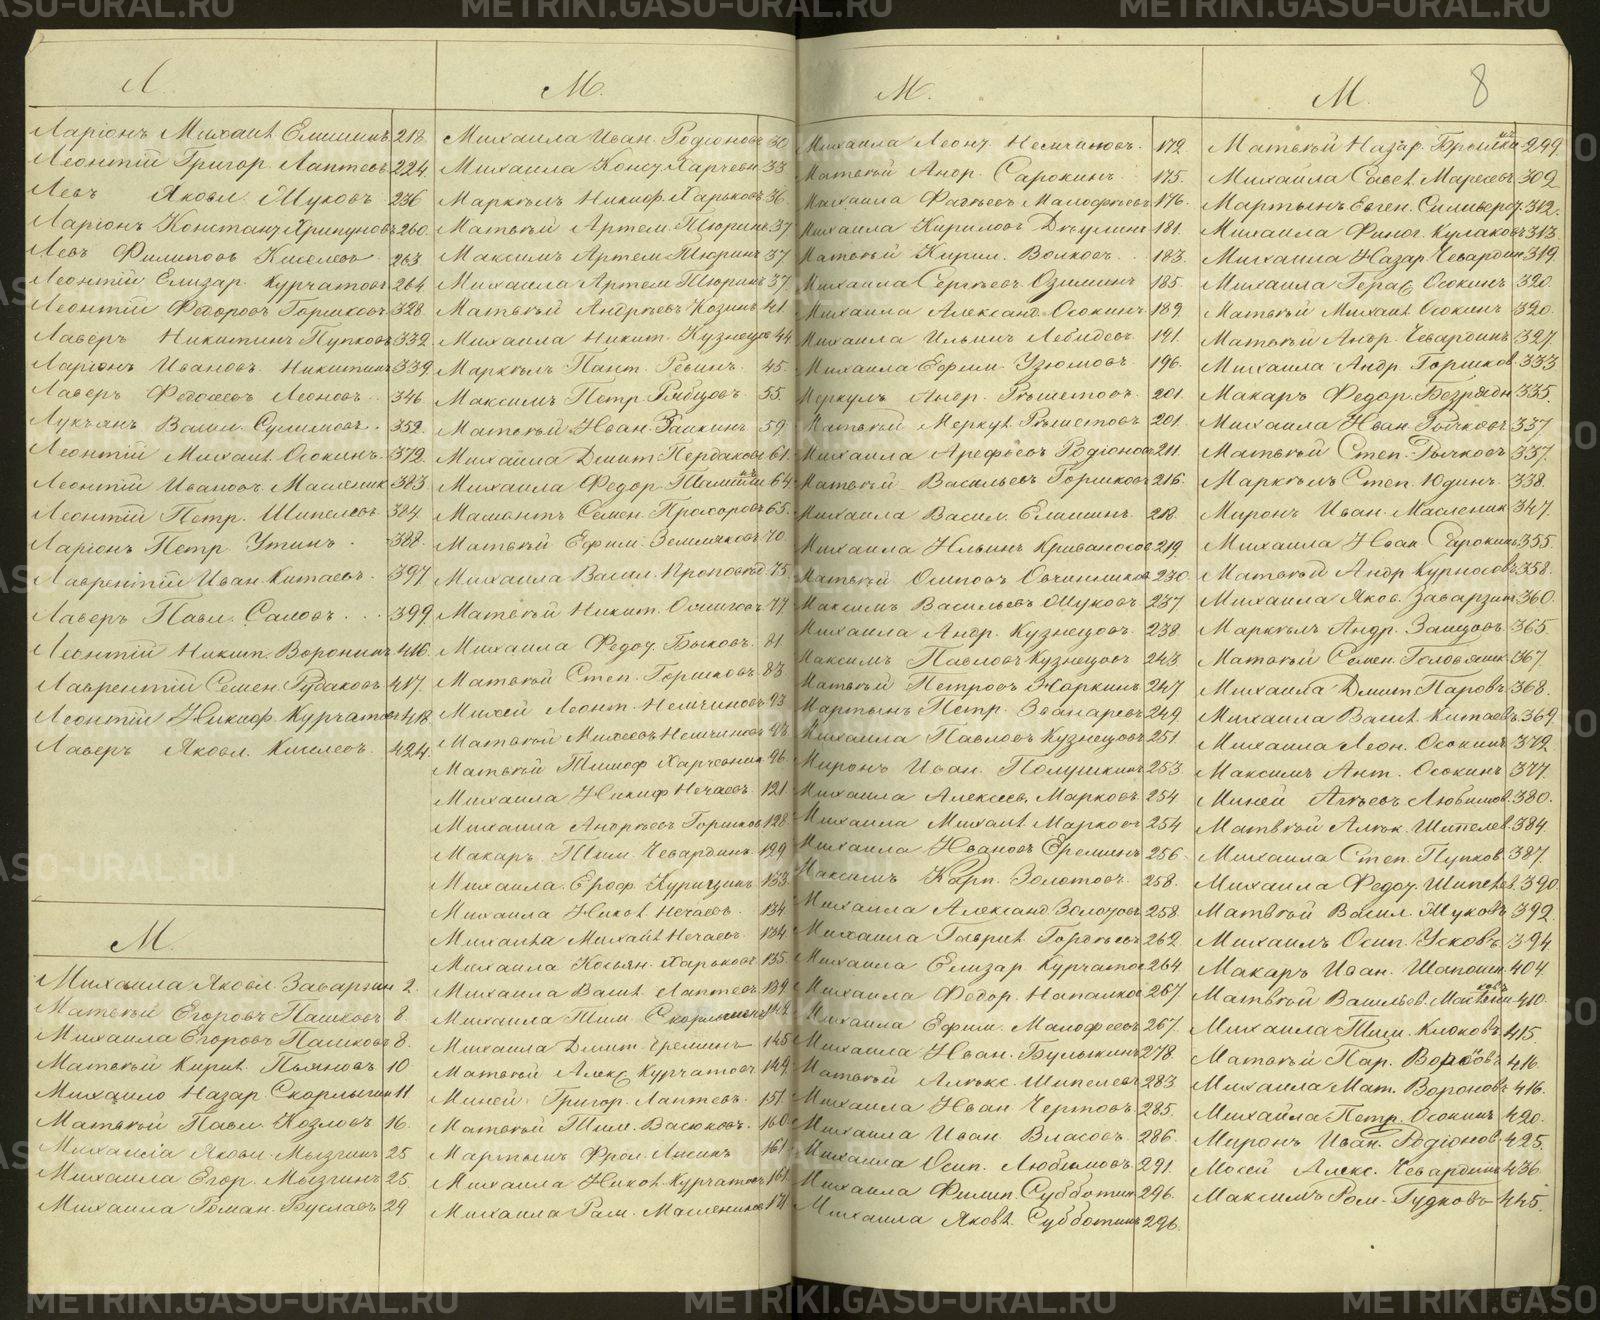 METRIKI.GASU-URAL.RU
8
Л.
Ларіонъ Михаил. Елишинъ 218
Леонтій Григор. Лаптевъ 224
Левъ Яковл. Шуковъ 236
Ларіонъ Констант. Хрипуновъ 260.
Левъ Филиповъ Киселевъ 263
Леонтій Елизар. Курчатовъ 264
Леонтій Федоровъ Горшковъ 328
Лаверъ Никитинъ Пупковъ 332
Ларіонъ Ивановъ Никитинъ 339
Лаверъ Федосеевъ Леоновъ 346
Лукъянъ Васил. Сулимовъ 352.
Леонтій Михаил. Осокинъ 372.
Леонтій Ивановъ Масленик 383
Леонтій Петр. Шипелевъ 384
Ларіонъ Петр. Утинъ 388.
Лаврентій Иван. Китаевъ 397
Лаверъ Павл. Саловъ 399
Леонтій Никит. Воронинъ 416.
Лаврентій Семен. Рудаковъ 417.
Леонтій Никиф. Курчатов 418
Лаверъ Яковл. Киселевъ 424.
М.
Михаила Яковл. Заварзин 2.
Матвѣй Егоровъ Пашковъ 8.
Михаила Егоровъ Пашковъ 8.
Матвѣй Кирил. Пьяновъ 10
Михаило Назар. Скорлыгин 11
Матвѣй Павл. Козловъ 16.
Михаила Яковл. Мызгинъ 25
Михаила Егор. Мызгинъ 25.
Михаила Роман. Буслаевъ 29
М.
Михаила Иван. Родіоновъ 30
Михаила Конст. Харчевн 33
Маркѣлъ Никиф. Харьковъ 36.
Матвѣй Артем. Тюринъ 37
Максимъ Артем. Тюринъ 37
Михаила Артем. Тюринъ 37.
Матвѣй Андрѣевъ Козинъ 41
Михаила Никит. Кузнецов 44
Маркѣлъ Пант. Ревинъ 45.
Максимъ Петр. Рябцовъ 55.
Матвѣй Иван. Заикинъ 59
Михаила Дмит. Пердаков 61.
Михаила Федор. 64
Мамонтъ Семен. Прохоровъ 65.
Матвѣй Ефим. Землячковъ 70.
Михаила Васил. Проповѣд 75
Матвѣй Никит. 77
Михаила Федот. Быковъ 81
Матвѣй Степ. Горшковъ 83
Михей Леонт. Немчиновъ 93
Матвѣй Михеевъ Немчиновъ 93
Матвѣй Тимоф. Харчевник 96.
Михаила Никиф. Нечаевъ 121
Михаила Андрѣевъ Горшков 128
Макаръ Тим. Чевардинъ 129
Михаила Ероф. Курицынъ 133
Михаила Никол. Нечаевъ 134
Михаила Михайл. Нечаевъ 134
Михаила Косьян. Харьковъ 135.
Михаила Васил. Лаптевъ 139
Михаила Тим. 142
Михаила Дмит. Еремин 145
Матвѣй Алекс. Курчатовъ 149.
Миней Григор. Лаптевъ 151
Матвѣй Тим. Васюковъ 160.
Мартынъ Фрол. 161
Михаила Никол. Курчатовъ 161.
Михаила Ром. Масленников 171
М.
Михаила Леонт. Немчиновъ 172
Матвѣй Андр. Сарокинъ 175.
Михаила Фатѣевъ Малофѣевъ 176.
Михаила Кириловъ 181.
Матвѣй Кирил. Волковъ 183.
Михаила Сергѣевъ Озиминъ 185.
Михаила Александ. Осокинъ 189.
Михаила Ильинъ Лебедевъ 191.
Михаила Ефим. Узюмовъ 196.
Меркулъ Андр. Рѣшетовъ 201
Матвѣй Меркул. Рѣшетовъ 201.
Михаила Арефьевъ Родіонов 211.
Матвѣй Васильевъ Горшковъ 216.
Михаила Васил. Елишинъ 218.
Михаила Ильинъ Кривоносов 219
Матвѣй Осиповъ Овчинников 230
Максимъ Васильевъ Шуковъ 237
Михаила Андр. Кузнецовъ 238
Максимъ Павловъ Кузнецовъ 243
Матвѣй Петровъ Жаркинъ 247
Мартынъ Петр. Званаревъ 249
Михаила Павловъ Кузнецовъ 251
Миронъ Иван. Полушкинъ 253
Михаила Алексеев. Марковъ 254
Михаила Михаил. Марковъ 254
Михаила Ивановъ Ереминъ 256.
Максимъ Карп. Золотовъ 258.
Михаила Александ. Золотовъ 258
Михаила Гаврил. Гордѣевъ 262.
Михаила Елизар. Курчатов 264
Михаила Федор. Напалков 267
Михаила Ефим. Малофеевъ 267.
Михаила Иван. Булыкинъ 278.
Матвѣй Алѣкс. Шипелевъ 283
Михаила Иван. Чертовъ 285.
Михаила Иван. Власовъ 286.
Михаила Осип. Любимовъ 291.
Михаила Филип. Субботин 296.
Михаила Яковл. Субботинъ 296.
М.
Матвѣй Назар. 299
Михаила Савел. Мареевъ 309
Мартынъ Евген. Силиверст. 312.
Михаила Финог. Кулаковъ 313
Михаила Назар. Чевардин 319.
Михаила Герас. Осокинъ 320.
Матвѣй Михаил. Осокинъ 320.
Матвѣй Андр. Чевардинъ 327.
Михаила Андр. Горшков 333
Макаръ Федор. Безрядн 335.
Михаила Иван. Рычковъ 337
Матвѣй Степ. Рычковъ 337.
Маркѣлъ Степ. Юдинъ 338.
Миронъ Иван. Масленик 347.
Михаила Иван. Сарокинъ 355.
Матвѣй Андр. Курносовъ 358.
Михаила Яков. Заварзин 360.
Маркѣлъ Андр. Заицовъ 365.
Матвѣй Семен. Головяшк 367.
Михаила Дмит. Паровъ 368.
Михаила Васил. Китаевъ 369.
Михаила Леон. Осокинъ 372.
Максимъ Ант. Осокинъ 377.
Миней Агѣевъ Любимов 380.
Матвѣй Алѣк. Шипелев 384.
Михаила Степ. Пупков 387.
Михаила Федот. Шипелев 390.
Матвѣй Васил. Шуковъ 392.
Михаилъ Осип. Усковъ 394
Макаръ Иван. Шапошн 404
Матвѣй Васильев. 410.
Михаила Тим. Клоковъ 415.
Матвѣй Пар. Вороновъ 416.
Михаила Мат. Вороновъ 416.
Михаила Петр. Осокинъ 420.
Миронъ Иван. Родіонов 425.
Мосей Алекс. Чевардинъ 436
Максимъ Ром. Гудковъ 445.